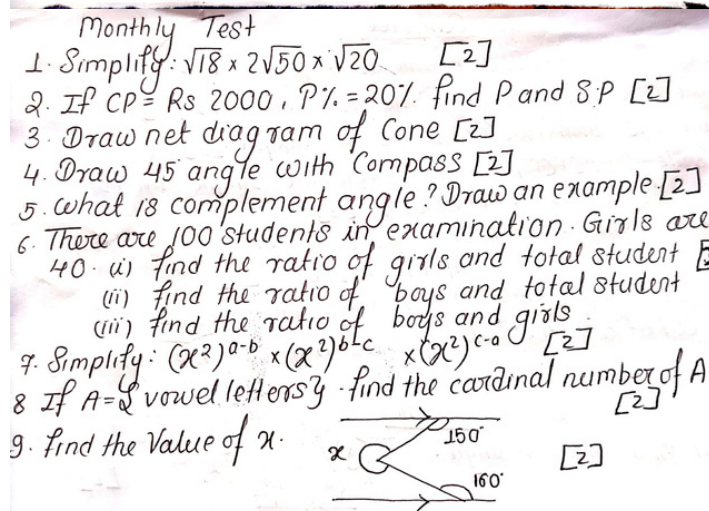 Monthly Test
1. Simplify: √18 x 2√50 x √20 [2]
2. If CP = Rs 2000, P% = 20% find P and S.P [2]
3. Draw net diagram of Cone [2]
4. Draw 45 angle with Compass [2]
5. what is complement angle? Draw an example [2]
6. There are 100 students in examination. Girls are
40. (i) find the ratio of girls and total student
(ii) find the ratio of boys and total student
(iii) find the ratio of boys and girls
7. Simplify: (x²)ᵃ⁻ᵇ x (x²)ᵇ⁻ᶜ x (x²)ᶜ⁻ᵃ [2]
8 If A = { vowel letters } . find the cardinal number of A
[2]
9. find the Value of x. [2]
150°
x
160°